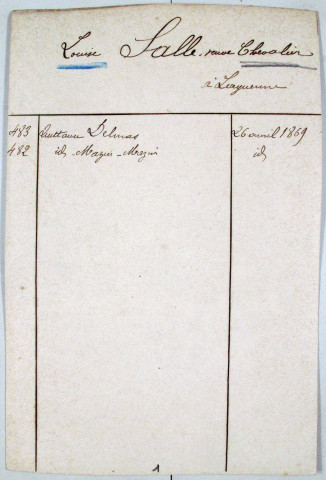 Louise Salle, veuve Chevalier
à Layguenne
483 Quittance Delmas 26 avril 1869
482 id Mazin-Mezin id
1